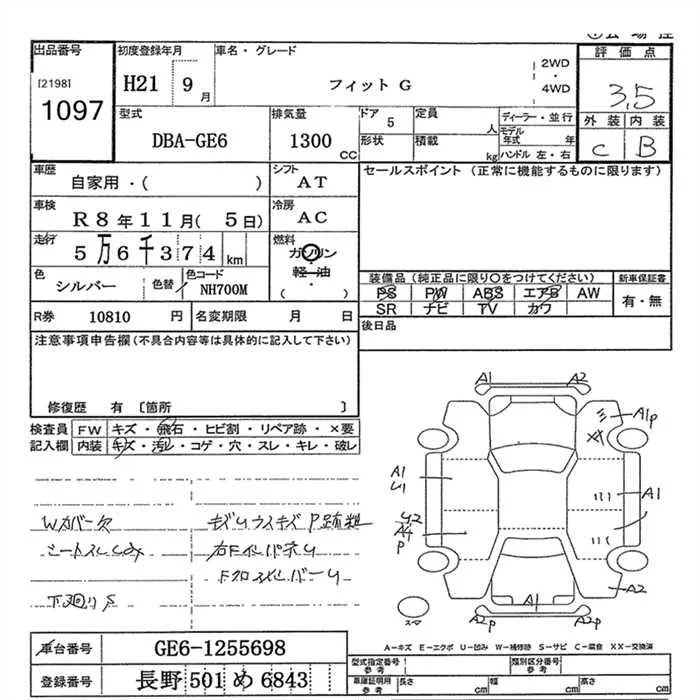 出品番号
[2198]
1097
初度登録年月
H21 9月
車名・グレード
フィット G
2WD
・
4WD
評価点
3.5
外装 内装
C B
型式
DBA-GE6
排気量
1300 CC
ドア 5
定員 人
形状
積載 kg
ディーラー・並行
モデル年式 年
ハンドル 左・右
車歴
自家用・( )
シフト
AT
セールスポイント (正常に機能するものに限ります)
車検
R 8年11月( 5日)
冷房
AC
走行
5万6千374 km
燃料
ガソリン
軽・油
・
( )
色
シルバー
色替
色コード
NH700M
装備品(純正品に限り○をつけてください)
PS PW ABS エアB AW
SR ナビ TV カワ
新車保証書
有・無
R券 10810 円
名変期限 月 日
後日品
注意事項申告欄(不具合内容等は具体的に記入して下さい)
修復歴 有 [箇所 ]
検査員記入欄
FW キズ・飛石・ヒビ割・リペア跡・×要
内装 キズ・汚レ・コゲ・穴・スレ・キレ・破レ
Wカバー欠
キズUウスキズ P跡粗
下廻りS
A1 A2
A1P
A1
U1
A1
U2
P
A2
A1
A2P A2P
スマ
A-キズ E-エクボ U-凹み W-補修跡 S-サビ C-腐食 XX-交換済
車台番号 GE6-1255698
登録番号 長野 501 め 6843
型式指定番号
参考
類別区分番号
参考
車庫証明用
参考
長さ cm
幅 cm
高さ cm